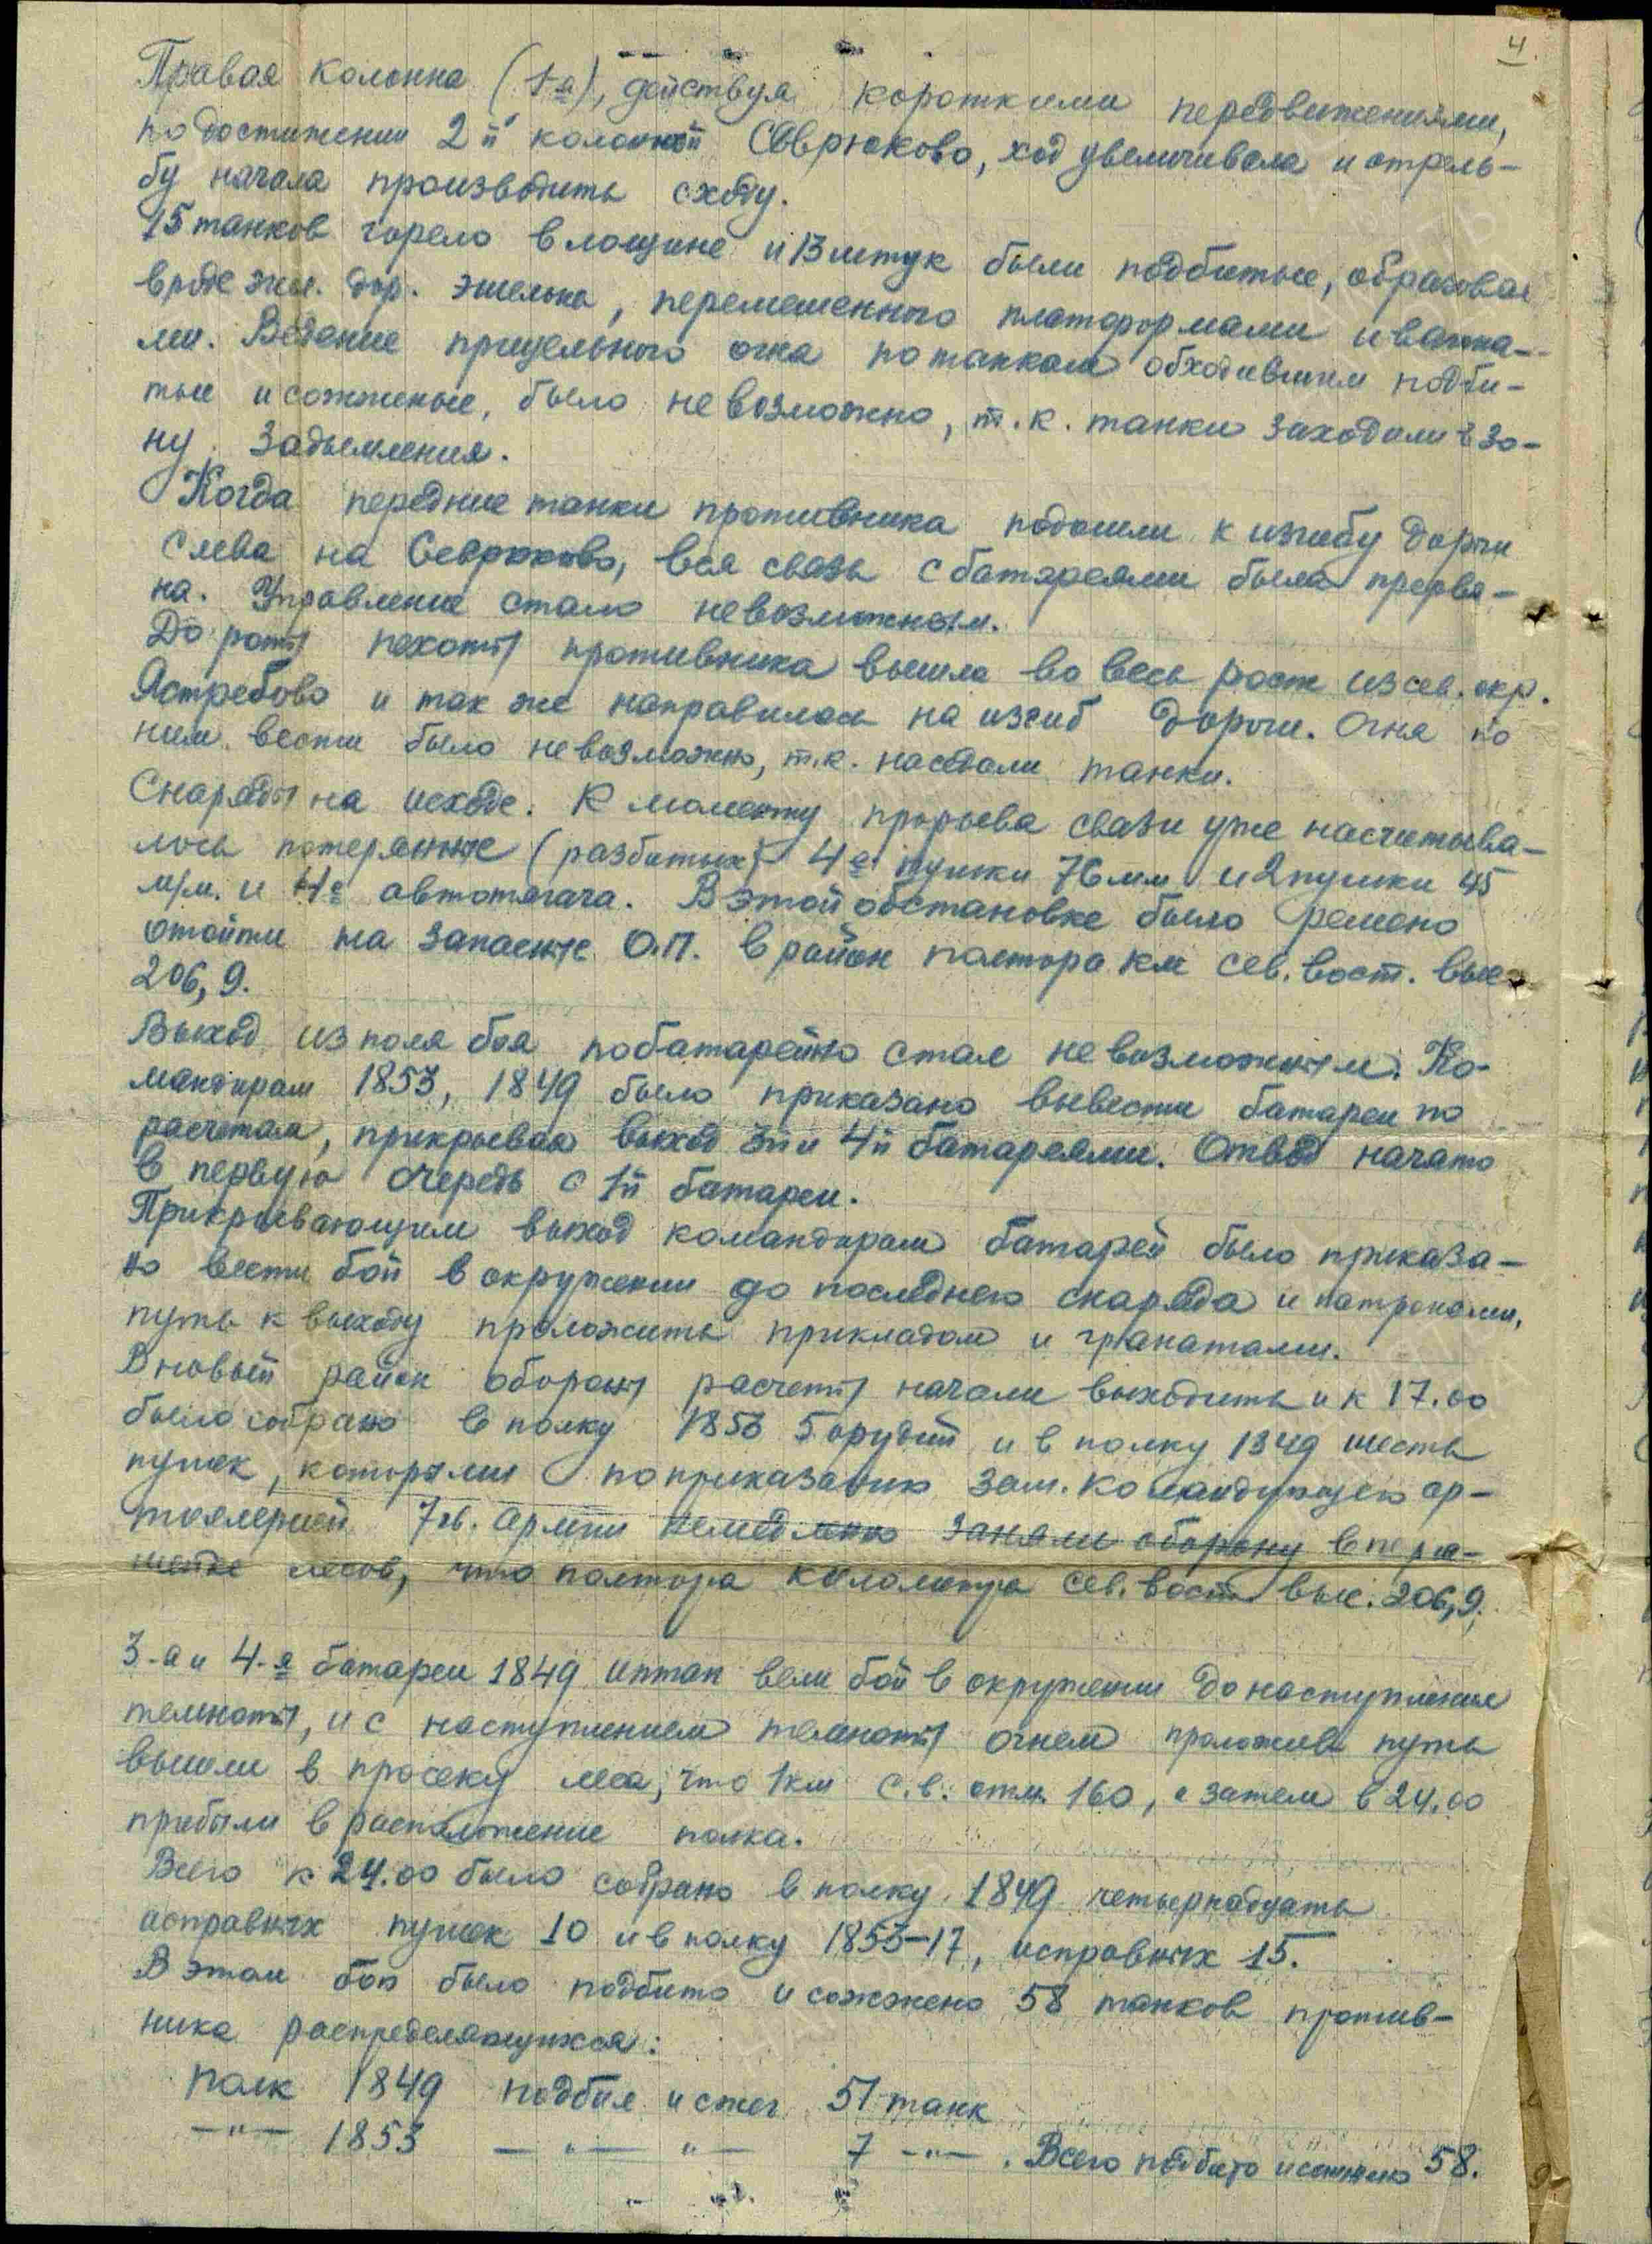 4
Правая колонна (1-я), действуя короткими передвижениями,
по достижении 2й колонной Севрюково, ход увеличивала и стрель-
бу начала производить сходу.
15 танков горело в лощине и 13 штук были подбитые, образовав
вроде жел. дор. эшелона, перемешенного платформами и вагона-
ми. Ведение прицельного огня по танкам обходившим подби-
тые и сожженые, было невозможно, т.к. танки заходили в зо-
ну задымления.
Когда передние танки противника подошли к изгибу дороги
слева на Севрюково, вся связь с батареями была прерва-
на. Управление стало невозможным.
До роты пехоты противника вышла во весь рост из сев. окр.
Ястребово и так же направилась на изгиб дороги. Огня по
ним вести было невозможно, т.к. наседали танки.
Снаряды на исходе. К моменту прорыва связи уже насчитыва-
лось потерянные (разбитых) 4е пушки 76 мм и 2 пушки 45
м/м. и 4е автотягача. В этой обстановке было решено
отойти на запасные О.П. в район полтора км сев. вост. выс
206,9.
Выход из поля боя побатарейно стал невозможным. Ко-
мандирам 1853, 1849 было приказано вывести батареи по
расчетам, прикрывая выход 3й и 4й батареями. Отвод начато
в первую очередь с 1й батареи.
Прикрывающим выход командирам батарей было приказа-
но вести бой в окружении до последнего снаряда и патронами,
путь к выходу проложить прикладом и гранатами.
В новый район обороны расчеты начали выходить и к 17.00
было собрано в полку 1853 5 орудий и в полку 1849 шесть
пушек, которыми по приказанию зам. командующего ар-
тиллерией 7 гв. армии немедленно заняли оборону в пере-
шейке лесов, что полтора километра сев. вост выс. 206,9.
3-я и 4-я батареи 1849 иптап вели бой в окружении до наступления
темноты, и с наступлением темноты огнем проложив путь
вышли в просеку леса, что 1 км с.в. отм. 160, а затем в 24.00
прибыли в расположение полка.
Всего к 24.00 было собрано в полку 1849 четырнадцать
исправных пушек 10 и в полку 1853-17, исправных 15.
В этом бою было подбито и сожжено 58 танков против-
ника распределяющихся:
Полк 1849 подбил и сжег 51 танк
—"— 1853 —"— "— 7 —"—. Всего подбито и сожжено 58.